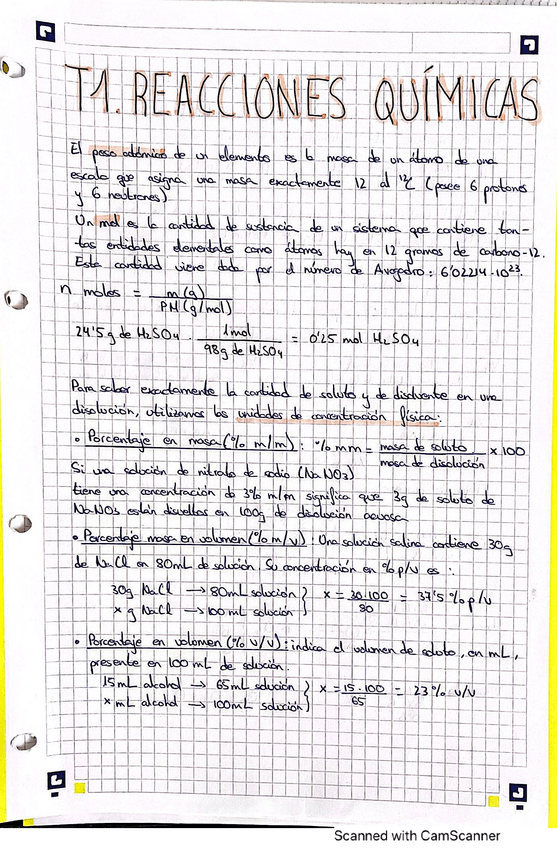 T1. REACCIONES QUÍMICAS
El peso atómico de un elemento es la masa de un átomo de una
escala que asigna una masa exactamente 12 al ¹²C (posee 6 protones
y 6 neutrones)
Un mol es la cantidad de sustancia de un sistema que contiene tan-
tas entidades elementales como átomos hay en 12 gramos de carbono-12.
Esta cantidad viene dada por el número de Avogadro: 6'02214·10²³.
n moles = m(g) / PM(g/mol)
24'5g de H₂SO₄ · 1mol / 98g de H₂SO₄ = 0'25 mol H₂SO₄
Para saber exactamente la cantidad de soluto y de disolvente en una
disolución, utilizamos las unidades de concentración física:
• Porcentaje en masa (% m/m): % mm = masa de soluto / masa de disolución × 100
Si una solución de nitrato de sodio (NaNO₃)
tiene una concentración de 3% m/m significa que 3g de soluto de
NaNO₃ están disueltos en 100g de disolución acuosa
• Porcentaje masa en volumen (% m/v): Una solución salina contiene 30g
de NaCl en 80mL de solución. Su concentración en % p/v es :.
30g NaCl → 80mL solución } x = 30·100 / 80 = 37'5 % p/v
x g NaCl → 100 mL solución
• Porcentaje en volumen (% v/v): indica el volumen de soluto, en mL,
presente en 100 mL de solución.
15mL alcohol → 65mL solución } x = 15·100 / 65 = 23% v/v
x mL alcohol → 100mL solución
Scanned with CamScanner